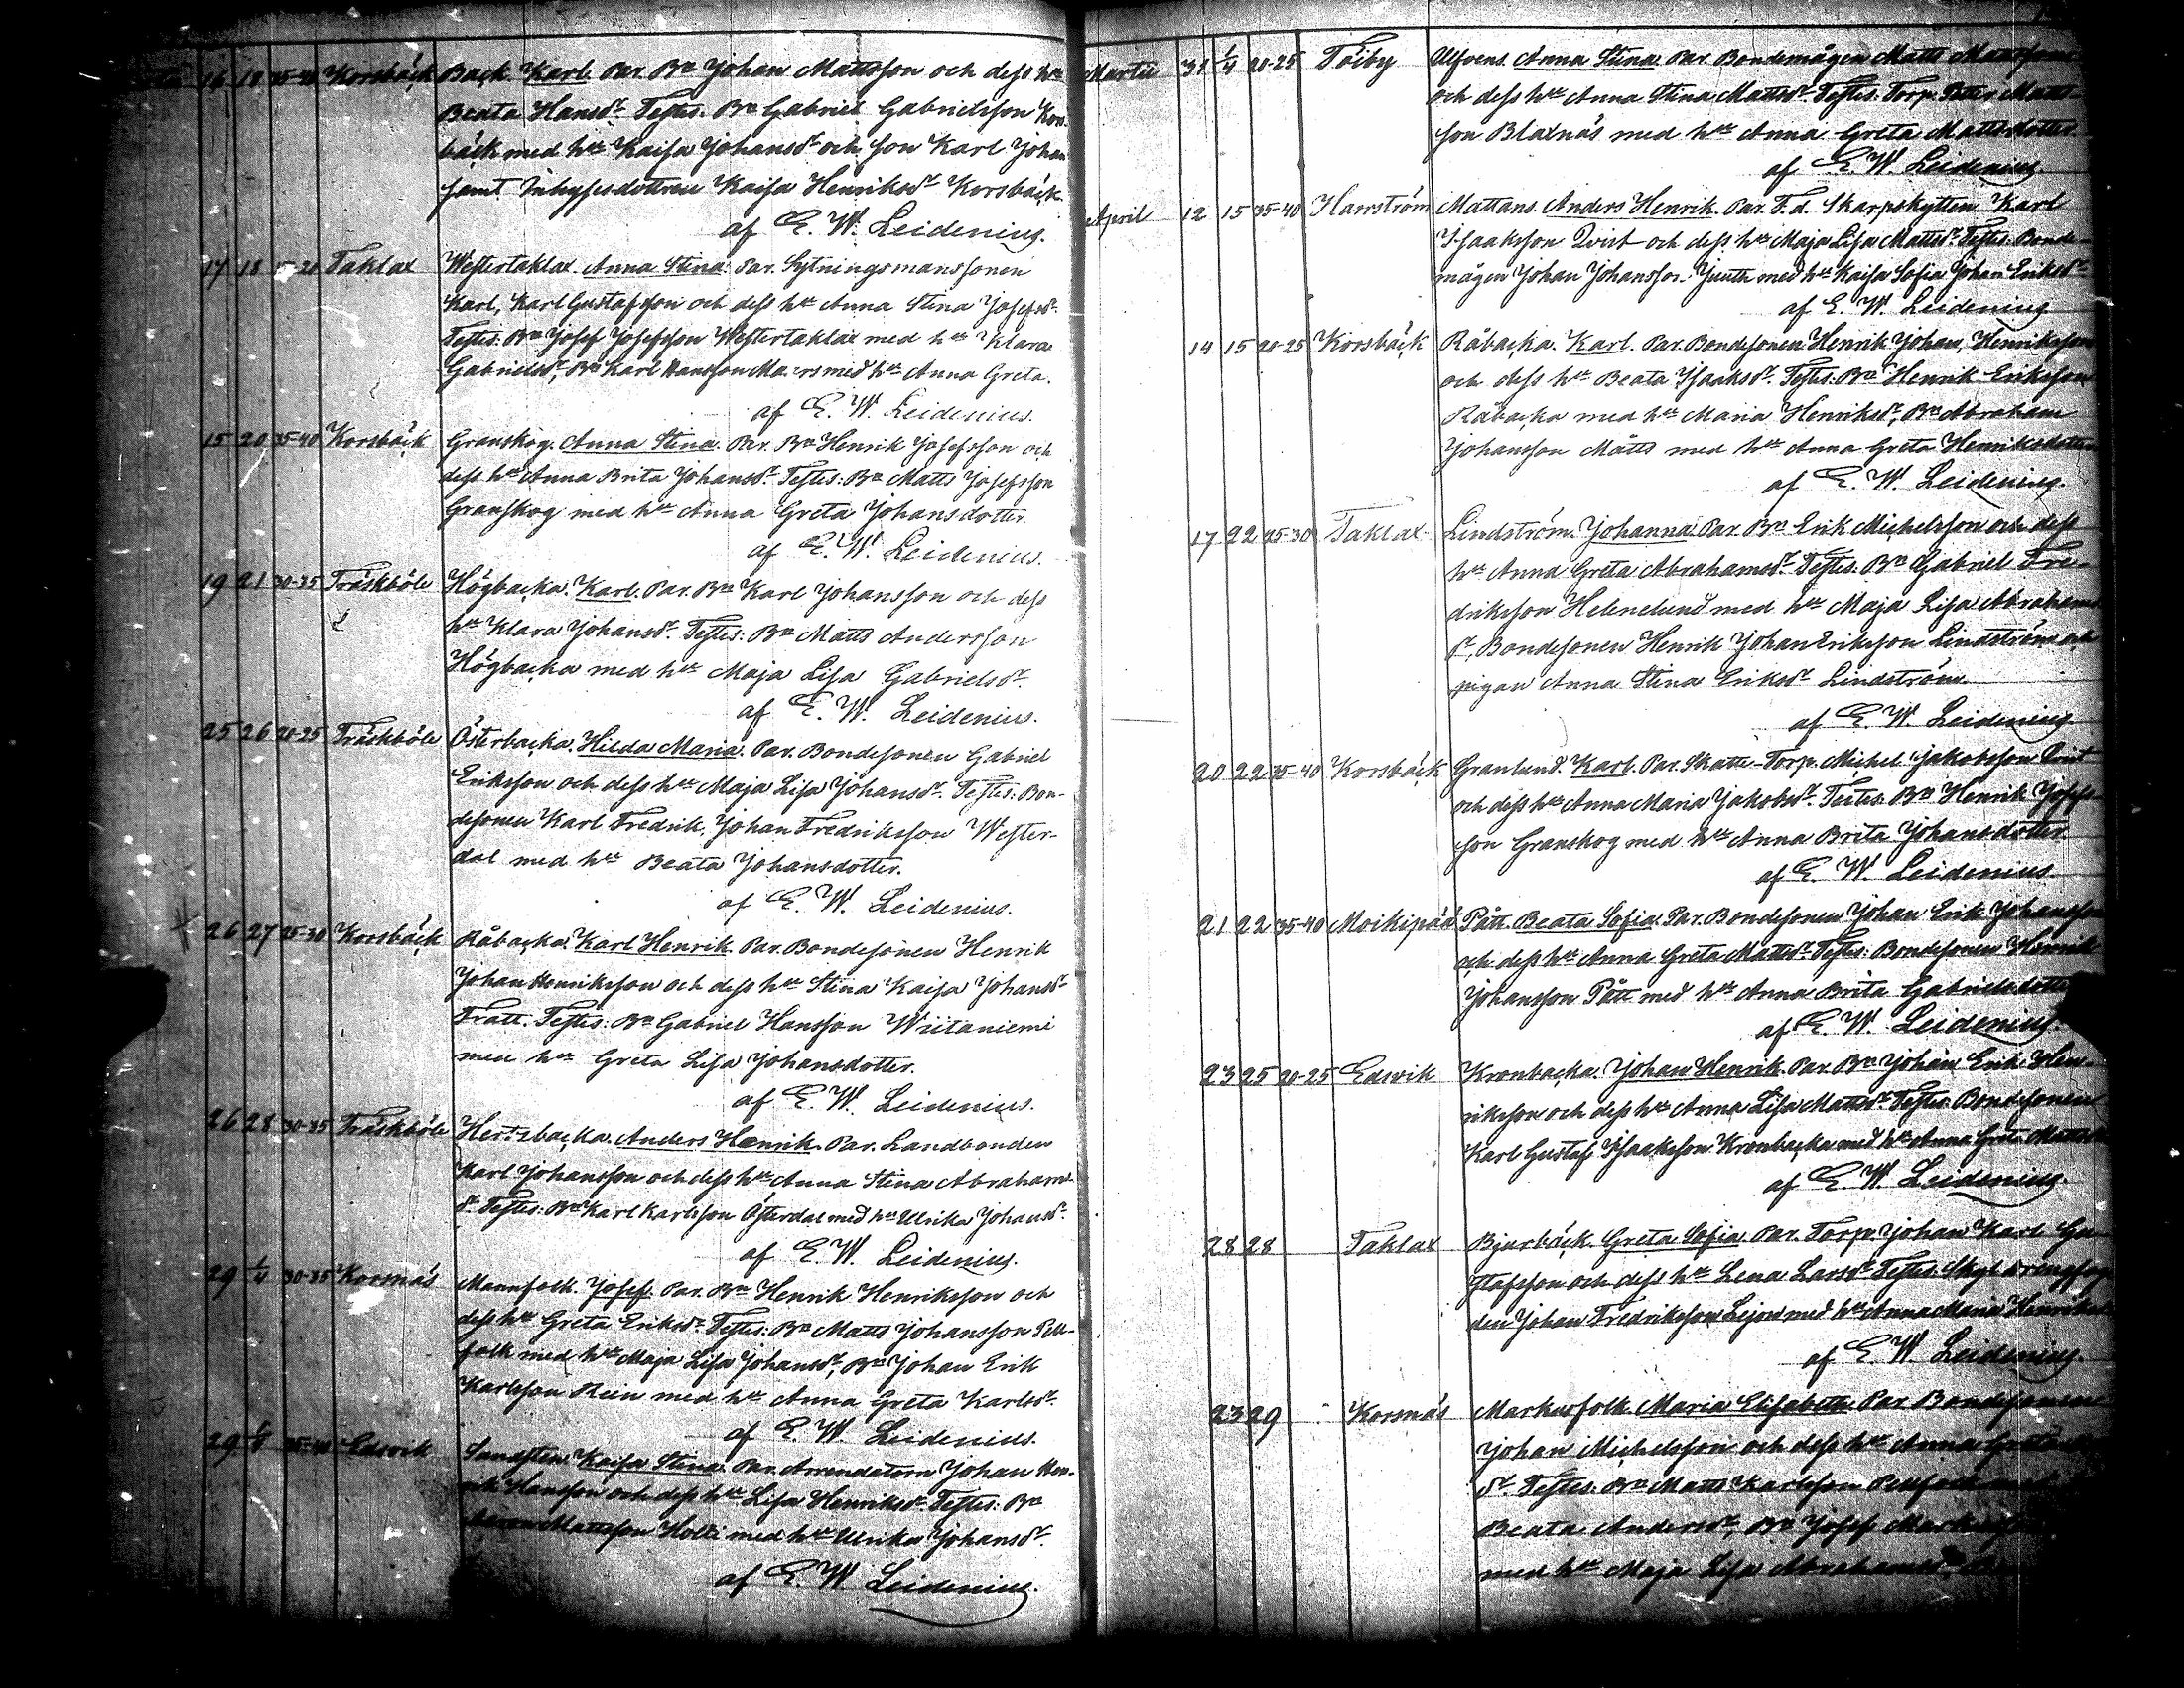 16 18 35-40 Korsbäck Back. Karl. Par. Bn Johan Mattsson och dess hu
Beata Hansdr. Testes: Bn Gabriel Gabrielsson Kors-
bäck med hu Kaisa Johansdr och son Karl Johan
samt Inhysesdottren Kaisa Henriksdr Korsbäck.
af E. W. Leidenius.
17 18 Taklax Westertaklax. Anna Stina. Par. Sytningsmanssonen
Karl, Karl Gustafsson och dess hu Anna Stina Josefsdr.
Testes: Bn Josef Josefsson Westertaklax med hu Klara
Gabrielsdr, Bn Karl Hansson med hu Anna Greta.
af E. W. Leidenius.
15 20 35-40 Korsbäck Granskog. Anna Stina. Par. Bn Henrik Josefsson och
dess hu Anna Brita Johansdr. Testes: Bn Matts Josefsson
Granskog med hu Anna Greta Johansdotter.
af E. W. Leidenius.
19 21 30-35 Träskböle Högbacka. Karl. Par. Bn Karl Johansson och dess
hu Klara Johansdr. Testes: Bn Matts Andersson
Högbacka med hu Maja Lisa Gabrielsdr.
af E. W. Leidenius.
25 26 20-25 Träskböle Österbacka. Hilda Maria. Par. Bondesonen Gabriel
Eriksson och dess hu Maja Lisa Johansdr. Testes: Bon-
desonen Karl Fredrik, Johan Fredriksson Wester-
dal med hu Beata Johansdotter.
af E. W. Leidenius.
26 27 25-30 Korsbäck Råbacka. Karl Henrik. Par. Bondesonen Henrik
Johan Henriksson och dess hu Stina Kaisa Johansdr
Tratt. Testes: Bn Gabriel Hansson Wiitaniemi
med hu Greta Lisa Johansdotter.
af E. W. Leidenius.
26 28 30-35 Träskböle Hertsbacka. Anders Henrik. Par. Landbonden
Karl Johansson och dess hu Anna Stina Abrahams-
dr Testes: Bn Karl Karlsson Österdal med hu Ulrika Johansdr.
af E. W. Leidenius.
29 1/4 30-35 Korsnäs Mannfolk. Josef. Par. Bn Henrik Henriksson och
dess hu Greta Eriksdr. Testes: Bn Matts Johansson Pell-
folk med hu Maja Lisa Johansdr, Bn Johan Erik
Karlsson Rein med hu Anna Greta Karlsdr.
af E. W. Leidenius.
29 Edsvik Sandsten. Kaisa Stina. Par. Arrendatorn Johan Hen-
rik Hansson och dess hu Lisa Henriksdr. Testes: Bn
Mattsson Holti med hu Ulrika Johansdr.
af E. W. Leidenius.
Martii 31 1/4 20-25 Töjby Ulfvens. Anna Stina. Par. Bondemågen Matts Mattsson
och dess hu Anna Stina Mattsdr. Testes: Torp. Petter Matts-
son Blaxnäs med hu Anna Greta Mattsdotter
af E. W. Leidenius
April 12 15 35-40 Harrström Mattans. Anders Henrik. Par. F.d. Skarpskytten Karl
Isaaksson Qvist och dess hu Maja Lisa Mattsdr. Testes: Bonde-
mågen Johan Johansson Juuth med hu Kaisa Sofia Johan Eriksdr
af E. W. Leidenius
14 15 20-25 Korsbäck Råbacka. Karl. Par. Bondesonen Henrik Johan, Henriksson
och dess hu Beata Isaaksdr. Testes: Bn Henrik Eriksson
Råbacka med hu Maria Henriksdr, Bn Abraham
Johansson Mätts med hu Anna Greta Henriksdotter
af E. W. Leidenius.
17 22 25-30 Taklax Lindström. Johanna. Par. Bn Erik Michelsson och dess
hu Anna Greta Abrahamsdr. Testes: Bn Gabriel Fre-
driksson Helenelund med hu Maja Lisa Abrahams
dr, Bondesonen Henrik Johan Eriksson Lindström och
pigan Anna Stina Eriksdr Lindström
af E. W. Leidenius
20 22 35-40 Korsbäck Granlund. Karl. Par. Skatte-Torp. Michel Jakobsson Qvist
och dess hu Anna Maria Jakobsdr. Testes: Bn Henrik Josefs-
son Granskog med hu Anna Brita Johansdotter.
af E. W. Leidenius
21 22 35-40 Moikipää Pått. Beata Sofia. Par. Bondesonen Johan Erik Johansson
och dess hu Anna Greta Mattsdr. Testes: Bondesonen Henrik
Johansson Pått med hu Anna Brita Gabrielsdotter
af E. W. Leidenius.
23 25 20-25 Edsvik Kronbacka. Johan Henrik. Par. Bn Johan Erik Hen-
riksson och dess hu Anna Lisa Mattsdr. Testes: Bondesonen
Karl Gustaf Isaaksson Kronbacka med hu Anna Greta Mattsdr
af E. W. Leidenius.
28 28 Taklax Bjurbäck. Greta Sofia. Par. Torp. Johan Karl Gu-
stafsson och dess hu Lena Larsdr. Testes:
den Johan Fredriksson Lejon med hu Anna Maria Henriksdr
af E. W. Leidenius.
23 29 Korsnäs Markusfolk. Maria Elisabeth. Par. Bondesonen
Johan Michelsson och dess hu Anna Greta
dr. Testes: Bn Matts Karlsson Pellfolk med
Beata Andersdr, Bn Josef
med hu Maja Lisa Abrahamsdr